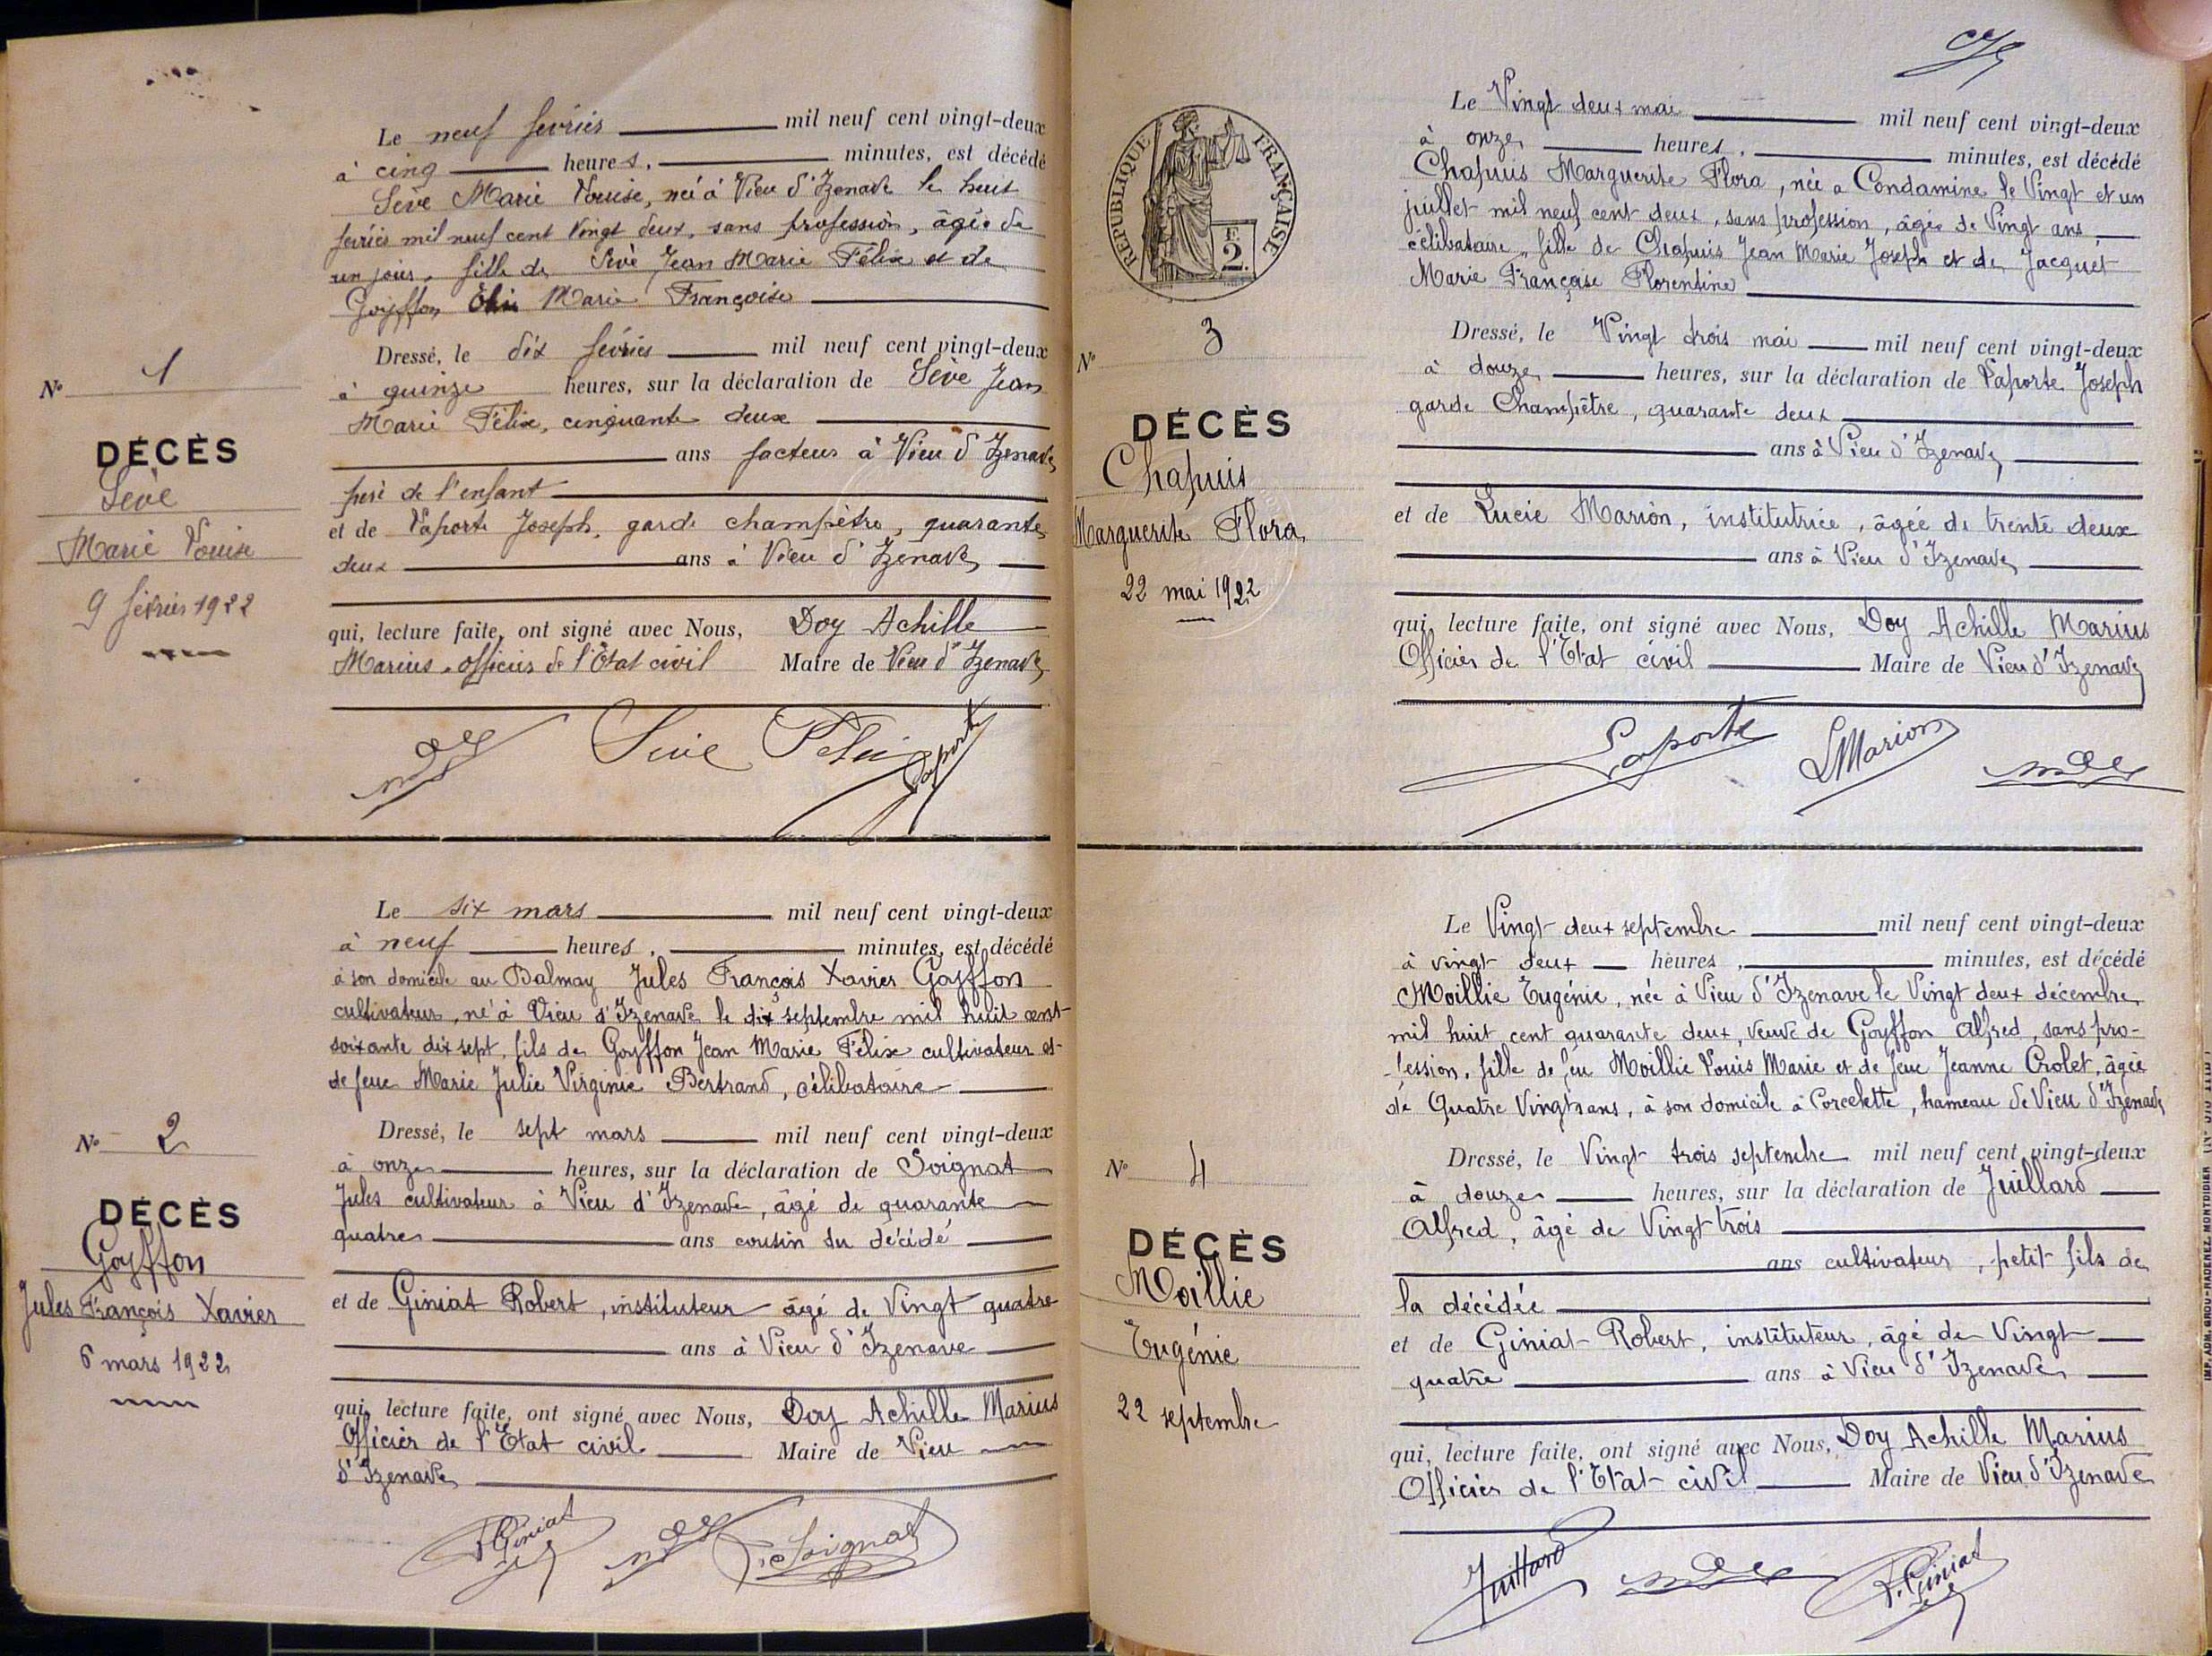 Le neuf février mil neuf cent vingt-deux
à cinq heures, minutes, est décédé
Sève Marie Louise, née à Vieu d'Izenave le huit
février mil neuf cent vingt deux, sans profession, âgée de
un jour, fille de Sève Jean Marie Félix et de
Goyffon Marie Françoise
Dressé, le dix février mil neuf cent vingt-deux
à quinze heures, sur la déclaration de Sève Jean
Marie Félix, cinquante deux
ans facteur à Vieu d'Izenave
père de l'enfant
et de Laporte Joseph, garde champêtre, quarante
deux ans à Vieu d'Izenave
qui, lecture faite, ont signé avec Nous, Doy Achille
Marius, officier de l'État civil Maire de Vieu d'Izenave
Sève Félix Laporte
N° 1
DÉCÈS
Sève
Marie Louise
9 février 1922
Le six mars mil neuf cent vingt-deux
à neuf heures, minutes, est décédé
à son domicile au Balmay Jules François Xavier Goyffon
cultivateur, né à Vieu d'Izenave le dix septembre mil huit cent
soixante dix sept, fils de Goyffon Jean Marie Félix cultivateur et
de feue Marie Julie Virginie Bertrand, célibataire
Dressé, le sept mars mil neuf cent vingt-deux
à onze heures, sur la déclaration de Soignat
Jules cultivateur à Vieu d'Izenave, âgé de quarante
quatre ans cousin du décédé
et de Giniat Robert, instituteur âgé de Vingt quatre
ans à Vieu d'Izenave
qui, lecture faite, ont signé avec Nous, Doy Achille Marius
Officier de l'État civil Maire de Vieu
d'Izenave
R Giniat Soignat
N° 2
DÉCÈS
Goyffon
Jules François Xavier
6 mars 1922
Le Vingt deux mai mil neuf cent vingt-deux
à onze heures, minutes, est décédé
Chapuis Marguerite Flora, née à Condamine le Vingt et un
juillet mil neuf cent deux, sans profession, âgée de Vingt ans,
célibataire, fille de Chapuis Jean Marie Joseph et de Jacquet
Marie Françoise Florentine
Dressé, le Vingt trois mai mil neuf cent vingt-deux
à douze heures, sur la déclaration de Laporte Joseph
garde Champêtre, quarante deux
ans à Vieu d'Izenave
et de Lucie Marion, institutrice, âgée de trente deux
ans à Vieu d'Izenave
qui, lecture faite, ont signé avec Nous, Doy Achille Marius
Officier de l'Etat civil Maire de Vieu d'Izenave
Laporte LMarion
RÉPUBLIQUE FRANÇAISE
2
N° 3
DÉCÈS
Chapuis
Marguerite Flora
22 mai 1922
Le Vingt deux septembre mil neuf cent vingt-deux
à vingt deux heures, minutes, est décédé
Moillie Eugénie, née à Vieu d'Izenave le Vingt deux décembre
mil huit cent quarante deux, veuve de Goyffon Alfred, sans pro-
-fession, fille de feu Moillie Louis Marie et de feue Jeanne Crolet, âgée
de Quatre Vingts ans, à son domicile à Corcelette, hameau de Vieu d'Izenave
Dressé, le Vingt trois septembre mil neuf cent vingt-deux
à douze heures, sur la déclaration de Juillard
Alfred, âgé de Vingt trois
ans cultivateur, petit fils de
la décédée
et de Giniat Robert, instituteur, âgé de Vingt
quatre ans à Vieu d'Izenave
qui, lecture faite, ont signé avec Nous, Doy Achille Marius
Officier de l'Etat civil Maire de Vieu d'Izenave
Juillard R. Giniat
N° 4
DÉCÈS
Moillie
Eugénie
22 septembre